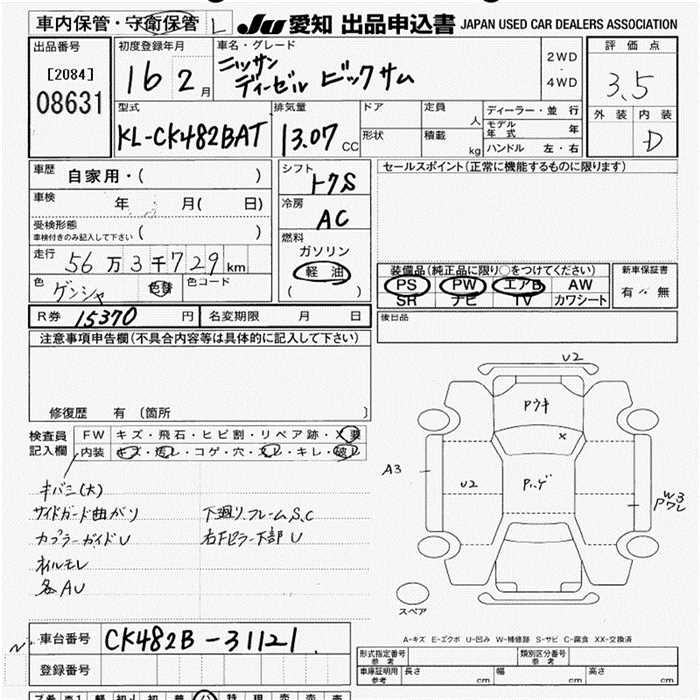 車内保管・守衛保管 L
JU 愛知 出品申込書 JAPAN USED CAR DEALERS ASSOCIATION
出品番号
[2084]
08631
初度登録年月
16 2月
車名・グレード
ニッサン
ディーゼル ビックサム
2WD
4WD
評価点
3.5
外装 内装
D
型式
KL-CK482BAT
排気量
13.07 CC
ドア
形状
定員 人
積載 kg
ディーラー・並行
モデル年式 年
ハンドル 左・右
車歴 自家用・( )
車検 年 月( 日)
受検形態
車検付きのみ記入して下さい ( )
走行 56万3千729km
色 ゲンシャ 色替 色コード
シフト
トクS
冷房
AC
燃料
ガソリン
軽油
( )
セールスポイント(正常に機能するものに限ります)
装備品(純正品に限り○をつけてください)
PS PW エアB AW
SR ナビ TV カワシート
新車保証書
有 無
R券 15370円 名変期限 月 日
後日品
注意事項申告欄(不具合内容等は具体的に記入して下さい)
修復歴 有 (箇所 )
検査員
記入欄
FW キズ・飛石・ヒビ割・リペア跡・X要
内装 キズ・汚レ・コゲ・穴・スレ・キレ・破レ
キバミ(大)
サイドガード曲がり 下廻り、フレームS,C
カプラーガイドU 右Fピラー下部U
オイルモレ
各AU
U2
Pウキ
X
A3
U2
P.ハゲ
W3
Pワレ
スペア
A-キズ E-エクボ U-凹み W-補修跡 S-サビ C-腐食 XX-交換済
車台番号 CK482B-31121
登録番号
型式指定番号
参考
類別区分番号
参考
車庫証明用
参考
長さ cm 幅 cm 高さ cm